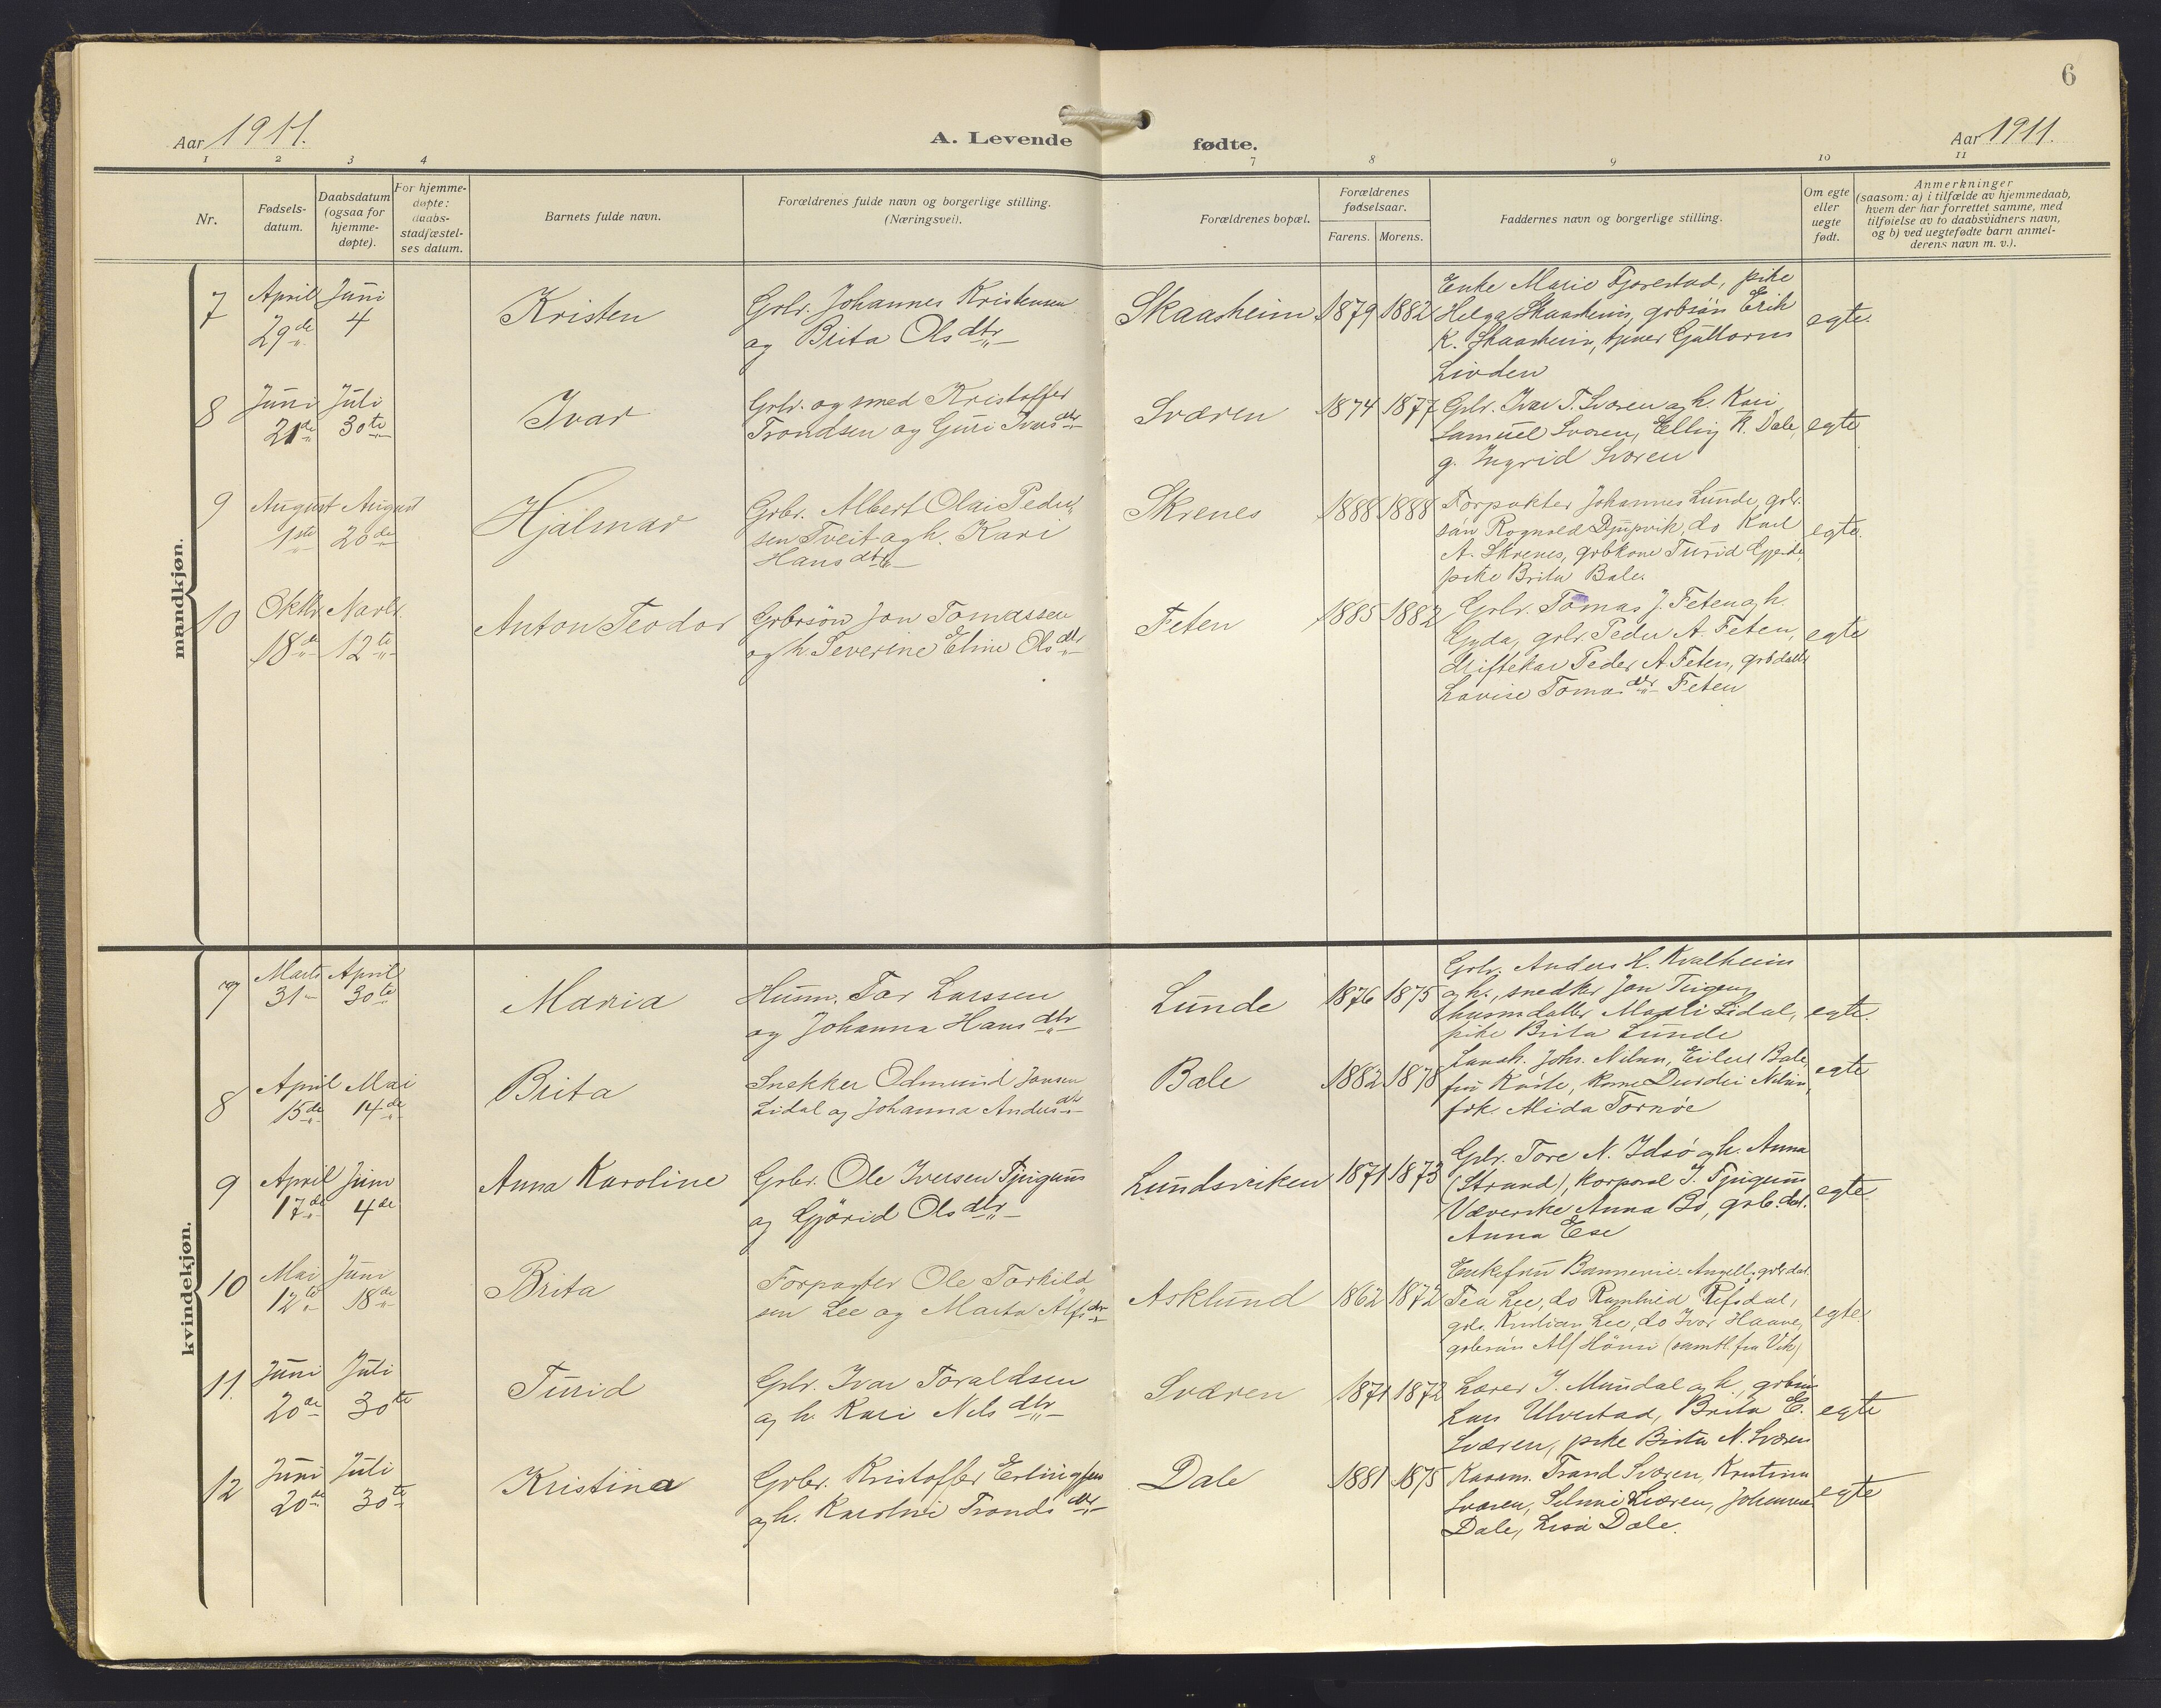 6
Aar 1911.
A. Levende fødte.
Aar 1911.
1 2 3 4 7 8 9 10 11
Nr.
Fødsels-
datum.
Daabsdatum
(ogsaa for
hjemme-
døpte).
For hjemme-
døpte:
daabs-
stadfæstel-
ses datum.
Barnets fulde navn.
Forældrenes fulde navn og borgerlige stilling.
(Næringsvei).
Forældrenes bopæl.
Forældrenes
fødselsaar.
Farens. Morens.
Faddernes navn og borgerlige stilling.
Om egte
eller
uegte
født.
Anmerkninger
(saasom: a) i tilfælde av hjemmedaab,
hvem der har forrettet samme, med
tilføielse av to daabsvidners navn,
og b) ved uegtefødte barn anmel-
derens navn m. v.).
mandkjøn.
7
April
29de
Juni
4
Kristen
Grbr. Johannes Kristensen
og Brita Olsdtr
Skaasheim
1879
1882
Enke Marie Fjærestad, pike
Helga Skaasheim, grbsøn Erik
K. Skaasheim, tjener Guttorm
Livden
egte.
8
Juni
21de
Juli
30te
Ivar
Grbr. og smed Kristoffer
Trondsen og Guri Ivarsdtr
Sværen
1874
1877
Grbr. Ivar T. Sværen og h. Kari,
Samuel Sværen, Elling K. Dale,
g. Ingrid Sværen
egte
9
August
1ste
August
20de
Hjalmar
Grbr. Albert Olai Peder
sen Tveit og h. Kari
Hansdtr
Skrenes
1888
1888
Forpakter Johannes Lunde, grbr.
søn Rognald Djupvik, do Karl
A. Skrenes, grbkone Turid
pike Brita Bale.
egte.
10
Oktbr.
18de
Novbr.
12te
Anton Teodor
Grbrsøn Jon Tomassen
og h. Severine Eline Olsdtr
Feten
1885
1882
Grbr. Tomas J. Feten og h.
Gyda, grbr. Peder A. Feten,
driftekar Peder A. Feten, grbdatter
Lovise Tomasdtr Feten
egte
kvindekjøn.
7
Marts
31
April
30te
Maria
Husm. Tor Larssen
og Johanna Hansdtr
Lunde
1876
1875
Grbr. Anders H. Kvalheim
og h., snedker Jon
husmdatter Marti Lidal,
pike Brita Lunde
egte.
8
April
15de
Mai
14de
Brita
Snekker Odmund Jonsen
Lidal og Johanna Andersdtr
Bale
1882
1878
Johs. Nilsen, Eilert Bale,
fru Kaarte, Kone Durdei Nilsen,
frk. Alida Tornøe
egte
9
April
17de
Juni
4de
Anna Karoline
Grbr. Ole Iversen Tjugum
og Gjørid Olsdtr
Lundsviken
1871
1873
Grbr. Tore N. Idsø og h. Anna
(Strand), korporal I. Tjugum
Væverske Anna Bø, grb.dat.
Anna Ese
egte
10
Mai
12te
Juni
18de
Brita
Forpagter Ole Torkild
sen Lee og Marta Alfsdtr
Asklund
1862
1872
Enkefru Angell, grbrdat.
Tea Lee, do Ragnhild Refsdal,
grbr. Kristian Lee, do Ivar Haave,
grbrsøn Alf Hønsi (samtl. fra Vik)
egte
11.
Juni
20de
Juli
30te
Turid
Grbr. Ivar Toraldsen
og h. Kari Nilsdtr
Sværen
1871
1872
Lærer J. Mundal og h., grbrsøn
Lars Ulvestad, Brita E.
Sværen, pike Brita N. Sværen
egte
12
Juni
20de
Juli
30te
Kristina
Grbr. Kristoffer Erlingsen
og h. Karoline Trondsdtr
Dale
1881
1875
Trond Sværen, Kristina
Sværen, Selmine Sværen, Johannes
Dale, Lisa Dale.
egte